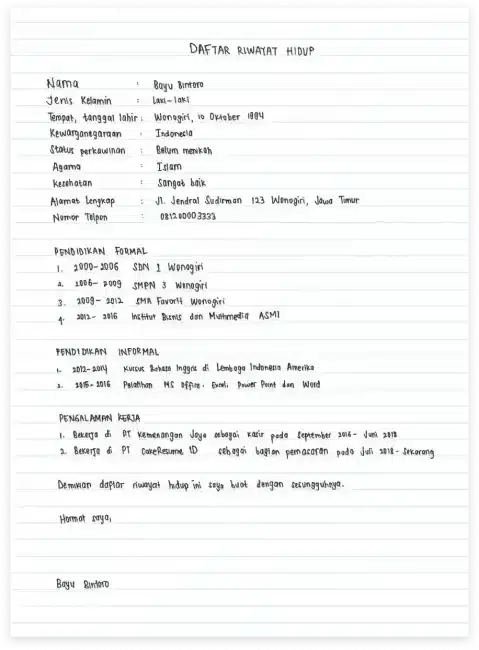 DAFTAR RIWAYAT HIDUP
Nama : Bayu Bintoro
Jenis Kelamin : Laki-laki
Tempat, tanggal lahir : Wonogiri, 10 Oktober 1994
Kewarganegaraan : Indonesia
Status perkawinan : Belum menikah
Agama : Islam
Kesehatan : Sangat baik
Alamat Lengkap : Jl. Jendral Sudirman 123 Wonogiri, Jawa Timur
Nomor Telpon : 081200003333
PENDIDIKAN FORMAL
1. 2000-2006 SDN 1 Wonogiri
2. 2006-2009 SMPN 3 Wonogiri
3. 2009-2012 SMA Favorit Wonogiri
4. 2012-2016 Institut Bisnis dan Multimedia ASMI
PENDIDIKAN INFORMAL
1. 2012-2014 Kursus Bahasa Inggris di Lembaga Indonesia Amerika
2. 2015-2016 Pelatihan MS Office. Excel, Power Point dan Word
PENGALAMAN KERJA
1. Bekerja di PT Kemenangan Jaya sebagai kasir pada September 2016 - Juni 2018
2. Bekerja di PT CakeResume ID sebagai bagian pemasaran pada Juli 2018 - Sekarang
Demikian daftar riwayat hidup ini saya buat dengan sesungguhnya.
Hormat saya,
Bayu Bintoro